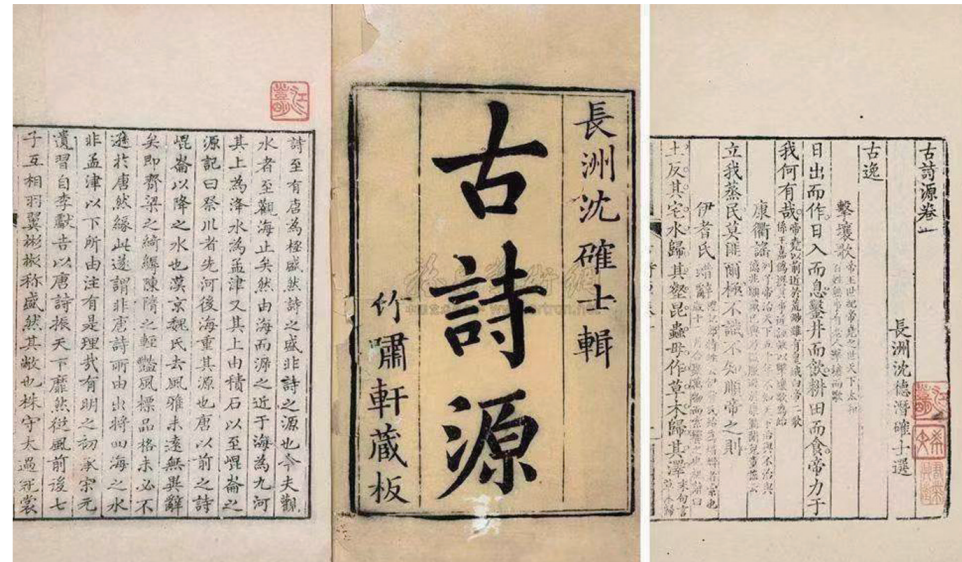 詩至有唐為極盛然詩之盛非詩之源也今夫觀
水者至觀海止矣然由海而溯之近于海為九河
其上為洚水為孟津又其上由積石以至崐崙之
源記曰祭川者先河後海重其源也唐以前之詩
崐崙以降之水也漢京魏氏去風雅未遠無異辭
矣即齊梁之綺縟陳隋之輕豔風標品格未必不
遜於唐然緣此遂謂非唐詩所由出將四海之水
非孟津以下所由注有是理哉有明之初承宋元
遺習自李獻吉以唐詩振天下靡然從風前後七
子互相羽翼彬彬称盛然其敝也株守太過冠裳
長洲沈確士輯
古詩源
竹嘯軒藏板
古詩源卷一
長洲沈德潛確士選
古逸
擊壤歌帝王世紀帝堯之世天下太和百姓無事有老人擊壤而歌
日出而作日入而息鑿井而飲耕田而食帝力于
我何有哉帝堯以前近於荒渺雖有皇娥白帝二歌係王嘉偽撰其事近誣故以擊壤歌為始
康衢謠
立我蒸民莫匪爾極不識不知順帝之則
伊耆氏蜡辭
土反其宅水歸其壑昆蟲毋作草木歸其澤